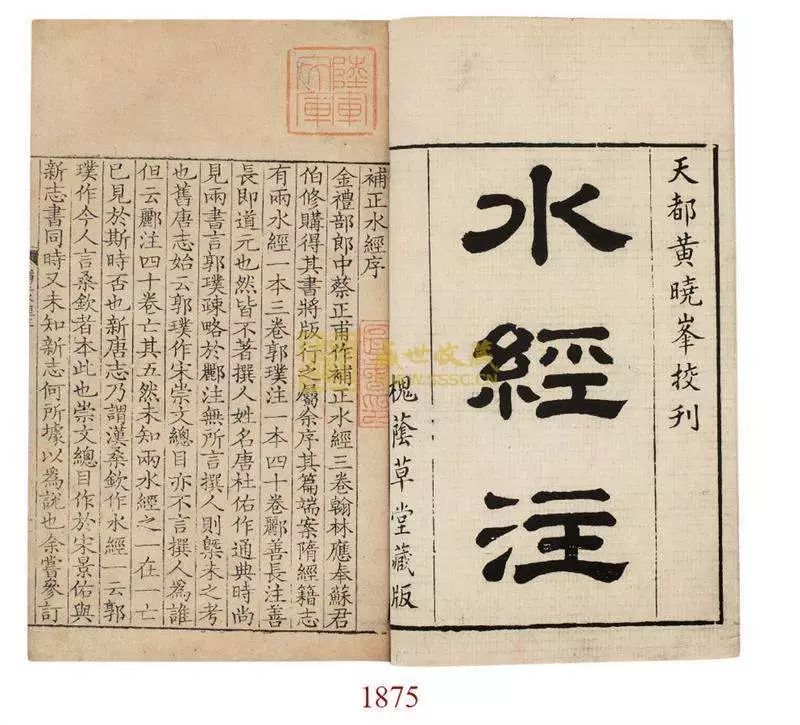 天都黃曉峯挍刊
水經注
槐蔭草堂藏版
陸軍文庫
補正水經序
金禮部郎中蔡正甫作補正水經三卷翰林應奉蘇君
伯修購得其書將版行之屬余序其篇端案隋經籍志
有兩水經一本三卷郭璞注一本四十卷酈善長注善
長即道元也然皆不著撰人姓名唐杜佑作通典時尚
見兩書言郭璞疎略於酈注無所言撰人則槩未之考
也舊唐志始云郭璞作宋崇文總目亦不言撰人爲誰
但云酈注四十卷亡其五然未知兩水經之 在一亡
已見於斯時否也新唐志乃謂漢桑欽作水經一云郭
璞作今人言桑欽者本此也崇文總目作於宋景佑與
新志書同時又未知新志何所據以爲說也余嘗參訂
盛世收藏
1875